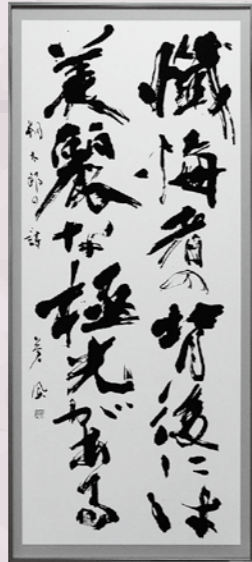 懺悔者の背後には
美麗な極光がある
朔太郎の詩
蒼風